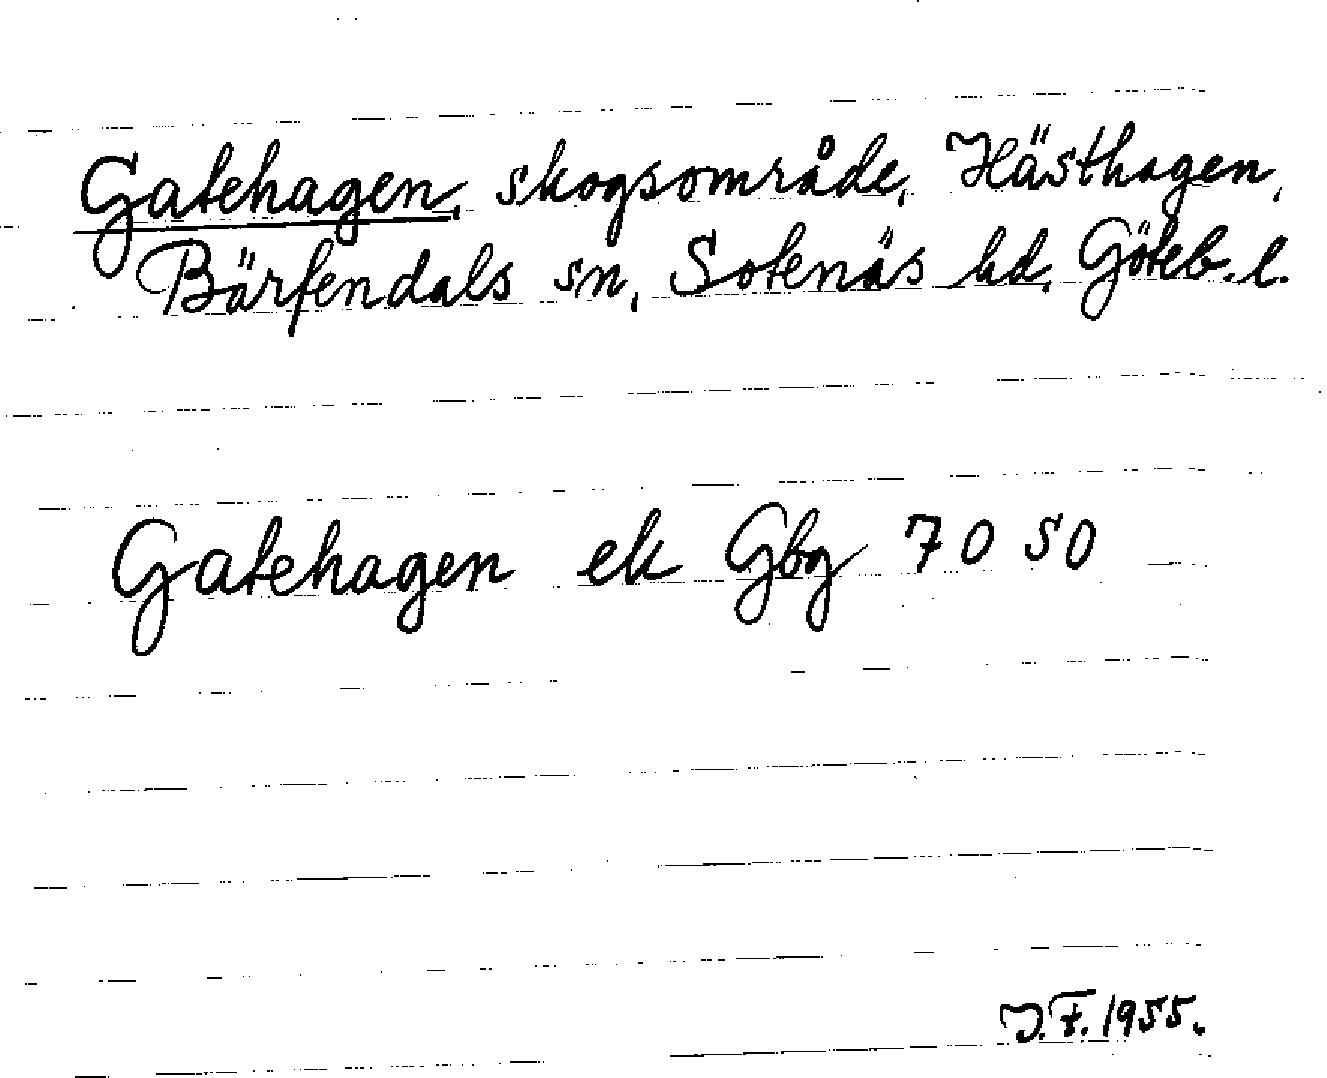 Gatehagen, skogsområde, Hästhagen,
Bärfendals sn, Sotenäs hd, Göteb. l.
Gatehagen ek Gbg 70 50
J.F. 1955.